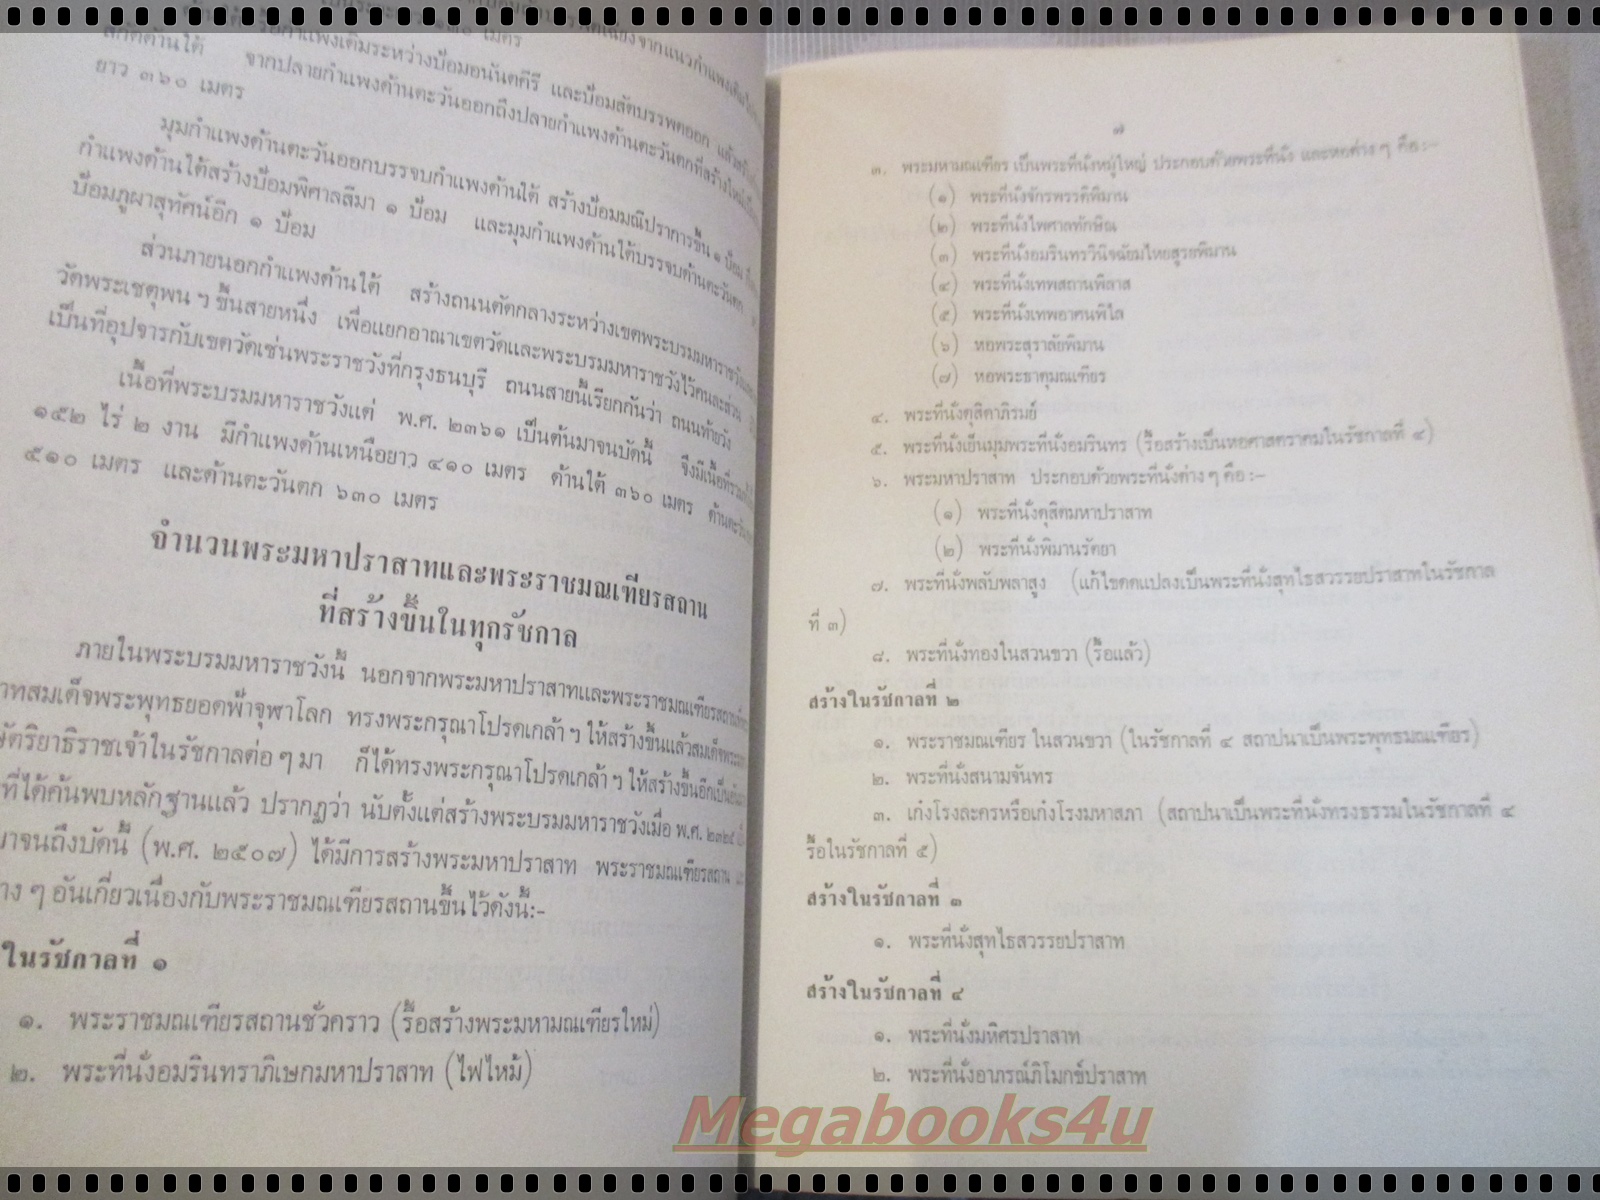 สกัดด้านใต้ จากปลายกำแพงด้านตะวันออกถึงปลายกำแพงด้านตะวันตกที่สร้างใหม่
ยาว ๓๖๐ เมตร
มุมกำแพงด้านตะวันออกบรรจบกำแพงด้านใต้ สร้างป้อมมณีปราการขึ้น ๑ ป้อม
กำแพงด้านใต้สร้างป้อมพิศาลสีมา ๑ ป้อม และมุมกำแพงด้านใต้บรรจบด้านตะวันตก
ป้อมภูผาสุทัศน์อีก ๑ ป้อม
ส่วนภายนอกกำแพงด้านใต้ สร้างถนนตัดกลางระหว่างเขตพระบรมมหาราชวัง
วัดพระเชตุพน ฯ ขึ้นสายหนึ่ง เพื่อแยกอาณาเขตวัดและพระบรมมหาราชวังไว้คนละส่วน
เป็นที่อุปจารกับเขตวัดเช่นพระราชวังที่กรุงธนบุรี ถนนสายนี้เรียกกันว่า ถนนท้ายวัง
เนื้อที่พระบรมมหาราชวังแต่ พ.ศ. ๒๓๖๑ เป็นต้นมาจนบัดนี้ จึงมีเนื้อที่
๑๕๒ ไร่ ๒ งาน มีกำแพงด้านเหนือยาว ๔๑๐ เมตร ด้านใต้ ๓๖๐ เมตร
๕๑๐ เมตร และด้านตะวันตก ๖๓๐ เมตร
จำนวนพระมหาปราสาทและพระราชมณเฑียรสถาน
ที่สร้างขึ้นในทุกรัชกาล
ภายในพระบรมมหาราชวังนี้ นอกจากพระมหาปราสาทและพระราชมณเฑียรสถาน
สมเด็จพระพุทธยอดฟ้าจุฬาโลก ทรงพระกรุณาโปรดเกล้า ฯ ให้สร้างขึ้นแล้ว
ในรัชกาลต่อ ๆ มา ก็ได้ทรงพระกรุณาโปรดเกล้า ฯ ให้สร้างขึ้นอีก
ที่ได้ค้นพบหลักฐานแล้ว ปรากฏว่า นับตั้งแต่สร้างพระบรมมหาราชวังเมื่อ พ.ศ. ๒๓๒๕
มาจนถึงบัดนี้ (พ.ศ. ๒๕๐๗) ได้มีการสร้างพระมหาปราสาท พระราชมณเฑียรสถาน
ๆ อันเกี่ยวเนื่องกับพระราชมณเฑียรสถานขึ้นไว้ดังนี้:-
ในรัชกาลที่ ๑
๑. พระราชมณเฑียรสถานชั่วคราว (รื้อสร้างพระมหามณเฑียรใหม่)
๒. พระที่นั่งอมรินทราภิเษกมหาปราสาท (ไฟไหม้)
๗
๓. พระมหามณเฑียร เป็นพระที่นั่งหมู่ใหญ่ ประกอบด้วยพระที่นั่ง และหอต่าง ๆ คือ :-
(๑) พระที่นั่งจักรพรรดิพิมาน
(๒) พระที่นั่งไพศาลทักษิณ
(๓) พระที่นั่งอมรินทรวินิจฉัยมไหยสูรยพิมาน
(๔) พระที่นั่งเทพสถานพิลาส
(๕) พระที่นั่งเทพอาศนพิไล
(๖) หอพระสุราลัยพิมาน
(๗) หอพระธาตุมณเฑียร
๔. พระที่นั่งดุสิดาภิรมย์
๕. พระที่นั่งเย็นมุมพระที่นั่งอมรินทร (รื้อสร้างเป็นหอศาสตราคมในรัชกาลที่ ๔)
๖. พระมหาปราสาท ประกอบด้วยพระที่นั่งต่าง ๆ คือ :-
(๑) พระที่นั่งดุสิตมหาปราสาท
(๒) พระที่นั่งพิมานรัตยา
๗. พระที่นั่งพลับพลาสูง (แก้ไขดัดแปลงเป็นพระที่นั่งสุทไธสวรรยปราสาทในรัชกาล
ที่ ๓)
๘. พระที่นั่งทองในสวนขวา (รื้อแล้ว)
สร้างในรัชกาลที่ ๒
๑. พระราชมณเฑียร ในสวนขวา (ในรัชกาลที่ ๔ สถาปนาเป็นพระพุทธมณเฑียร)
๒. พระที่นั่งสนามจันทร
๓. เก๋งโรงละครหรือเก๋งโรงมหาสภา (สถาปนาเป็นพระที่นั่งทรงธรรมในรัชกาลที่ ๔
รื้อในรัชกาลที่ ๕)
สร้างในรัชกาลที่ ๓
๑. พระที่นั่งสุทไธสวรรยปราสาท
สร้างในรัชกาลที่ ๔
๑. พระที่นั่งมหิศรปราสาท
๒. พระที่นั่งอาภรณ์ภิโมกข์ปราสาท
Megabooks4u